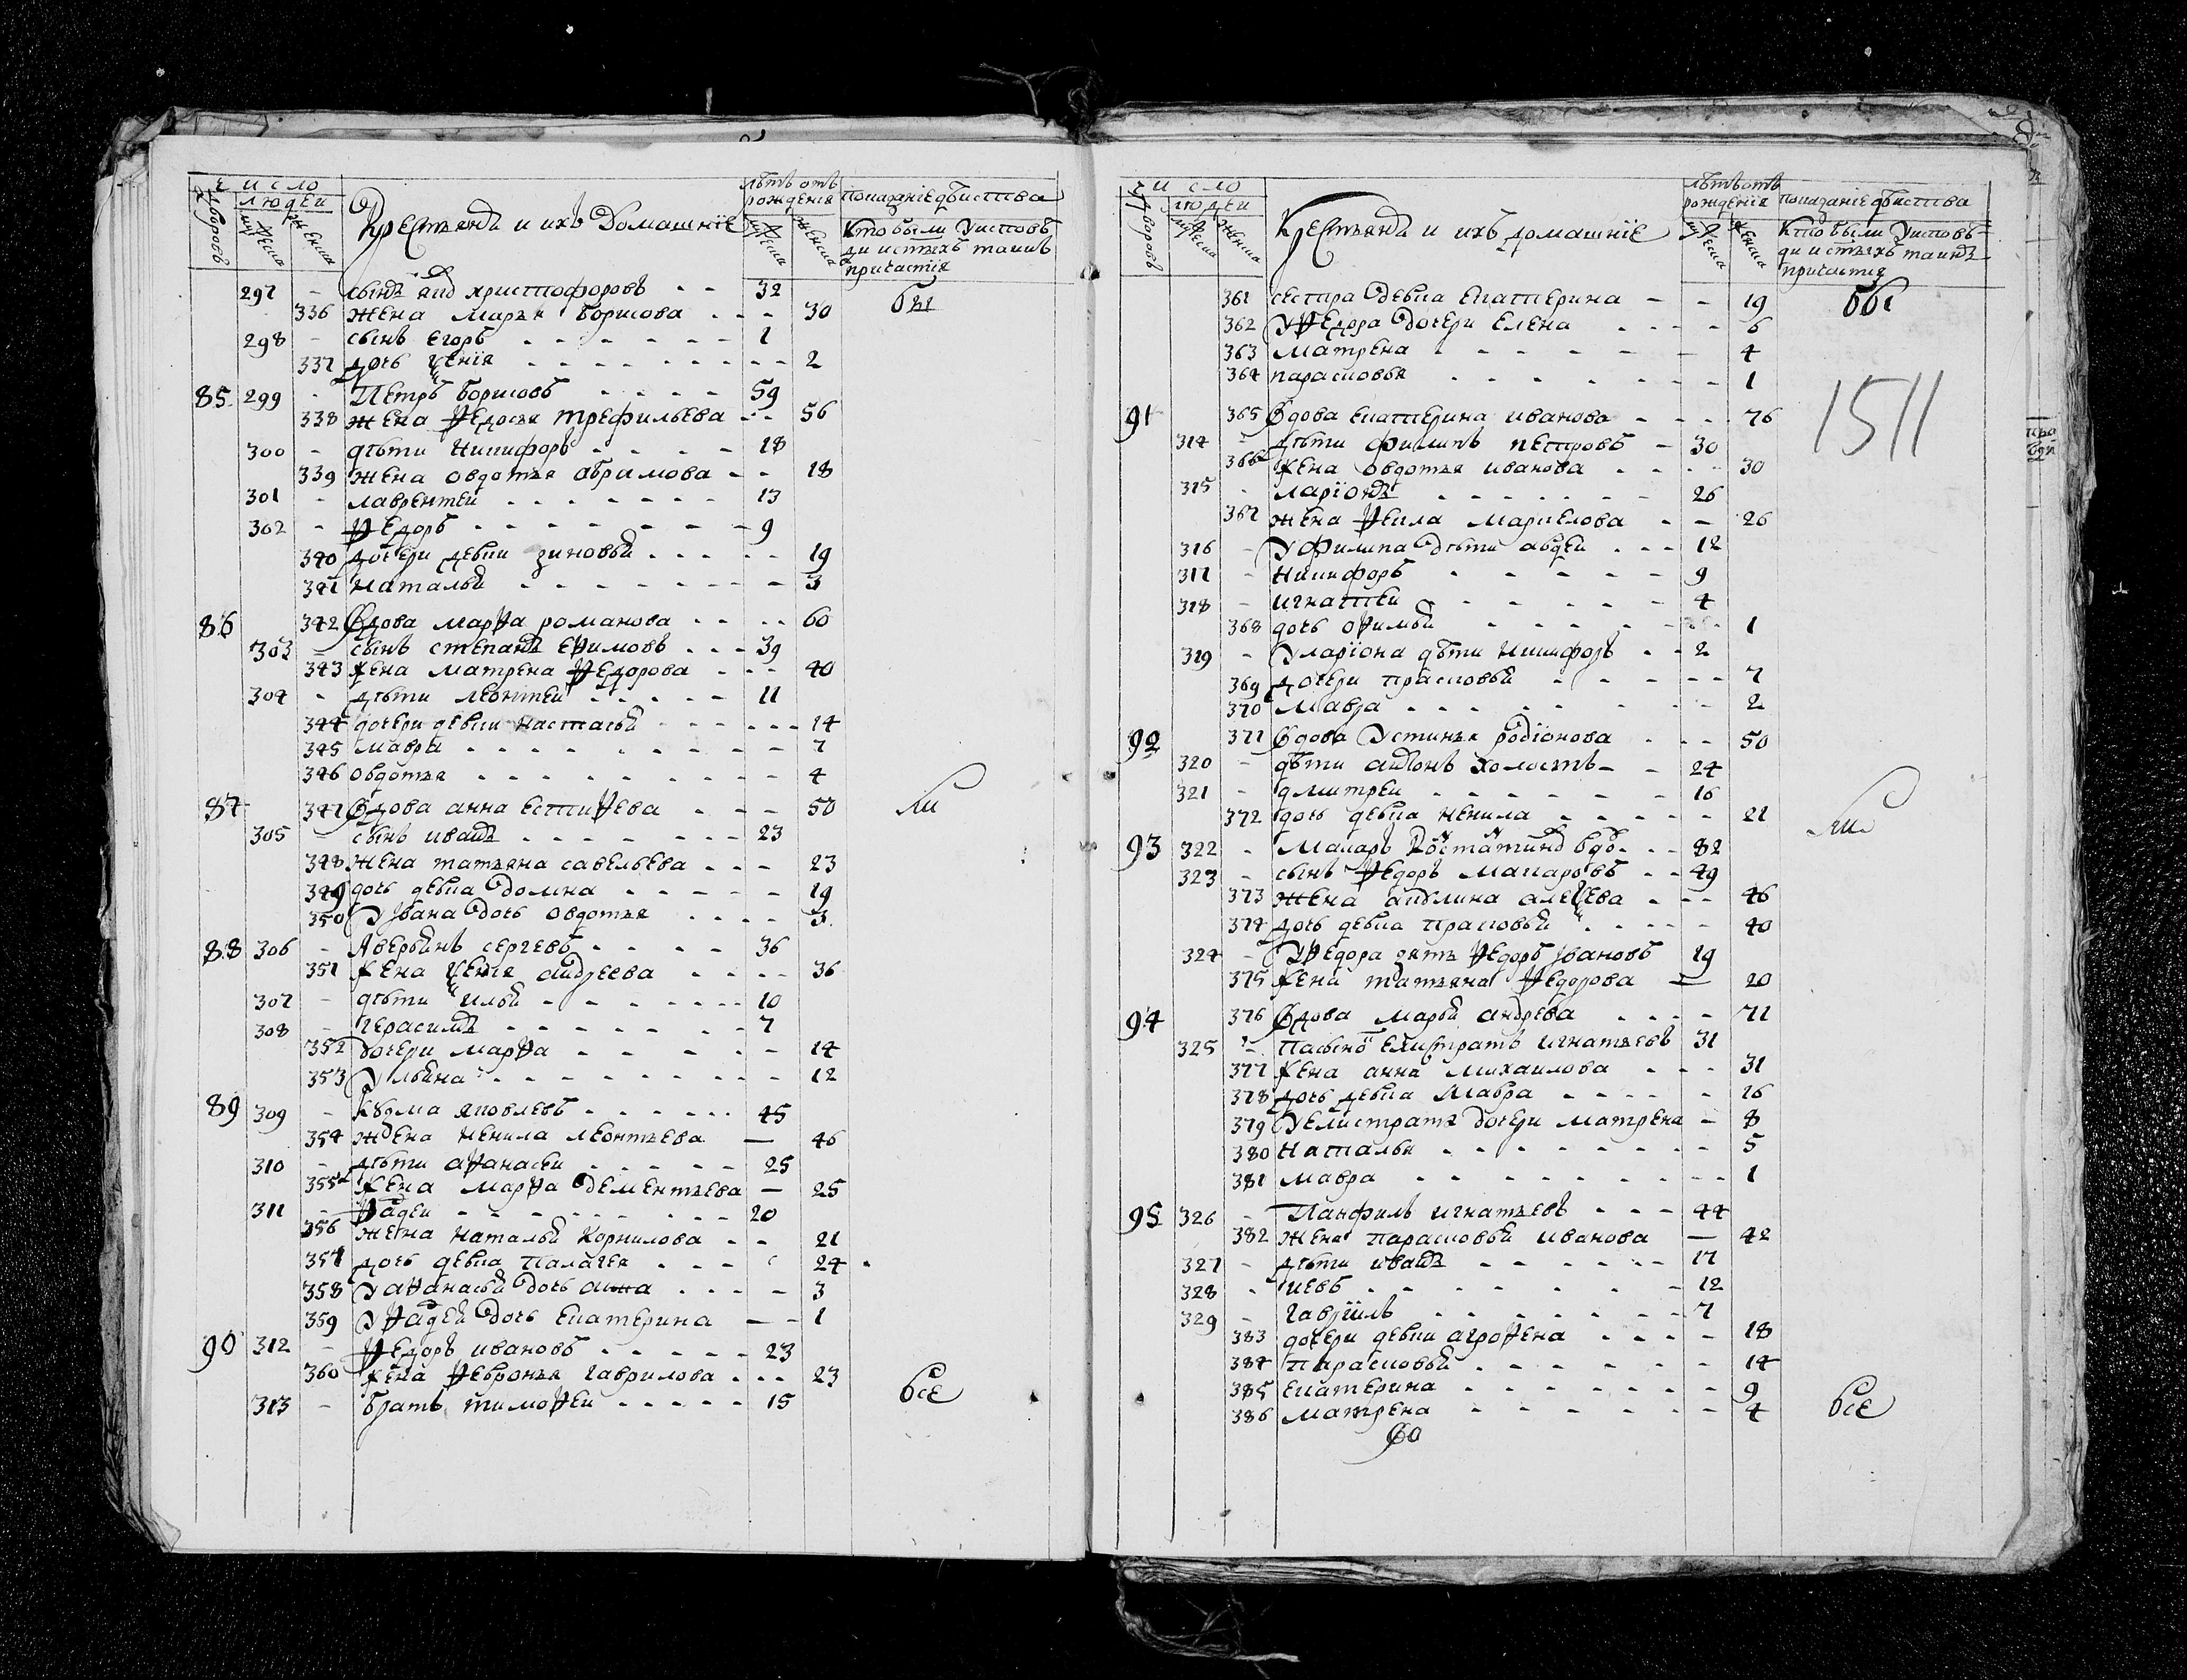 число
дворовъ
людей
мужеска
женска
Крестьяне и ихъ Домашніе
лѣтъ отъ рожденія
мужеска
женска
показаніе дѣиства
Кто были у исповѣ-
ди и с: тѣхъ таинъ
причастія
297 - сынъ христофоровъ - - 32
336 жена Марья борисова - - - 30 бы
298 - сынъ Егоръ - - - 1
337 дочь - - - 2
85 299 - Петръ борисовъ - - - 59
338 жена Ѳедосья трефильева - - 56
300 - дѣти Никифоръ - - - 18
339 жена овдотья абрамова - - 18
301 - лаврентеи - - - 13
302 - Ѳедоръ - - - 9
340 дочери девки зиновья - - - 19
341 Наталья - - - 3
86 342 Вдова марѳа романова - - - 60
303 - сынъ степанъ еѳимовъ - - - 39
343 жена матрена Ѳедорова - - - 40
304 - дѣти леонтеи - - - 11
344 дочери девки настасья - - - 14
345 мавра - - - 7
346 овдотья - - - 4
87 347 Вдова анна естиѳева - - - 50 ли
305 - сынъ иванъ - - - 23
348 жена татьяна савельева - - - 23
349 дочь девка домна - - - 19
350 У Ивана дочь овдотья - - - 3
88 306 - Аверьянъ сергеевъ - - - 36
351 жена андреева - - - 36
307 - дѣти илья - - - 10
308 - герасимъ - - - 7
352 дочери марѳа - - - 14
353 Ульяна - - - 12
89 309 - козма яковлевъ - - - 45
354 жена ненила леонтьева - 46
310 - дѣти аѳанасеи - - - 25
355 жена марѳа дементьева - 25
311 - Ѳадеи - - - 20
356 жена наталья корнилова - - 21
357 дочь девка палагея - - - 24
358 У аѳанасья дочь анна - - - 3
359 У Ѳадея дочь екатерина - - 1
90 312 - Ѳедоръ ивановъ - - - 23
360 жена Ѳевронья гаврилова - - - 23
313 - братъ тимоѳеи - - - 15 все
число
дворовъ
людеи
мужеска
женска
Крестьяне и ихъ домашніе
лѣтъ отъ рожденія
мужеска
женска
показаніе дѣиства
Кто были у исповѣ-
ди и с: тѣхъ таинъ
причастия
361 сестра девка екатерина - - 19 бы
362 У Ѳедора дочери елена - - - 6
363 матрена - - - 4
364 парасковья - - - 1
1511
91 365 Вдова екатерина иванова - - - 76
314 - дѣти филипъ петровъ - 30
366 жена овдотья иванова - - - 30
315 - ларіонъ - - - 26
367 жена Ѳекла маркелова - - 26
316 - У филипа дѣти авдеи - - - 12
317 - никифоръ - - - 9
318 - игнатеи - - - 4
368 дочь оѳимья - - - 1
319 - У ларіона дѣти никифоръ - - 2
369 дочери прасковья - - - 7
370 мавра - - - 2
92 371 Вдова Устинья родіонова - - - 50
320 - дѣти антонъ холостъ - - 24
321 - дмитреи - - - 16
372 дочь девка ненила - - - 21 ли
93 322 - Макаръ костатинъ вдо - - - 82
323 - сынъ Ѳедоръ макаровъ - - 49
373 жена акулина - - - 46
374 дочь девка прасковья - - - 40
324 - У Ѳедора зять Ѳедоръ Ивановъ 19
375 жена татьяна Ѳедорова - 20
94 376 Вдова марья андреева - - - 71
325 - пасынок елистратъ игнатьевъ 31
377 жена анна михаилова - - - 31
378 дочь девка мавра - - - 16
379 У елистрата дочери матрена - 8
380 Наталья - - - 5
381 мавра - - - 1
95 326 - Панфилъ игнатьевъ - - - 44
382 жена парасковья иванова - 42
327 - дѣти иванъ - - - 17
328 - иевъ - - - 12
329 - гавріилъ - - - 7
383 дочери девки агроѳена - - - 18
384 парасковья - - - 14
385 екатерина - - - 9
386 матрена - - - 4 все
во